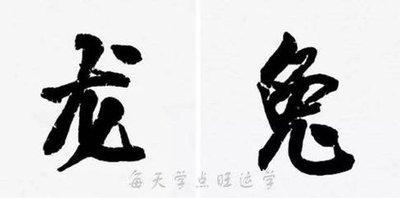 龙 兔
每天学点旺运学